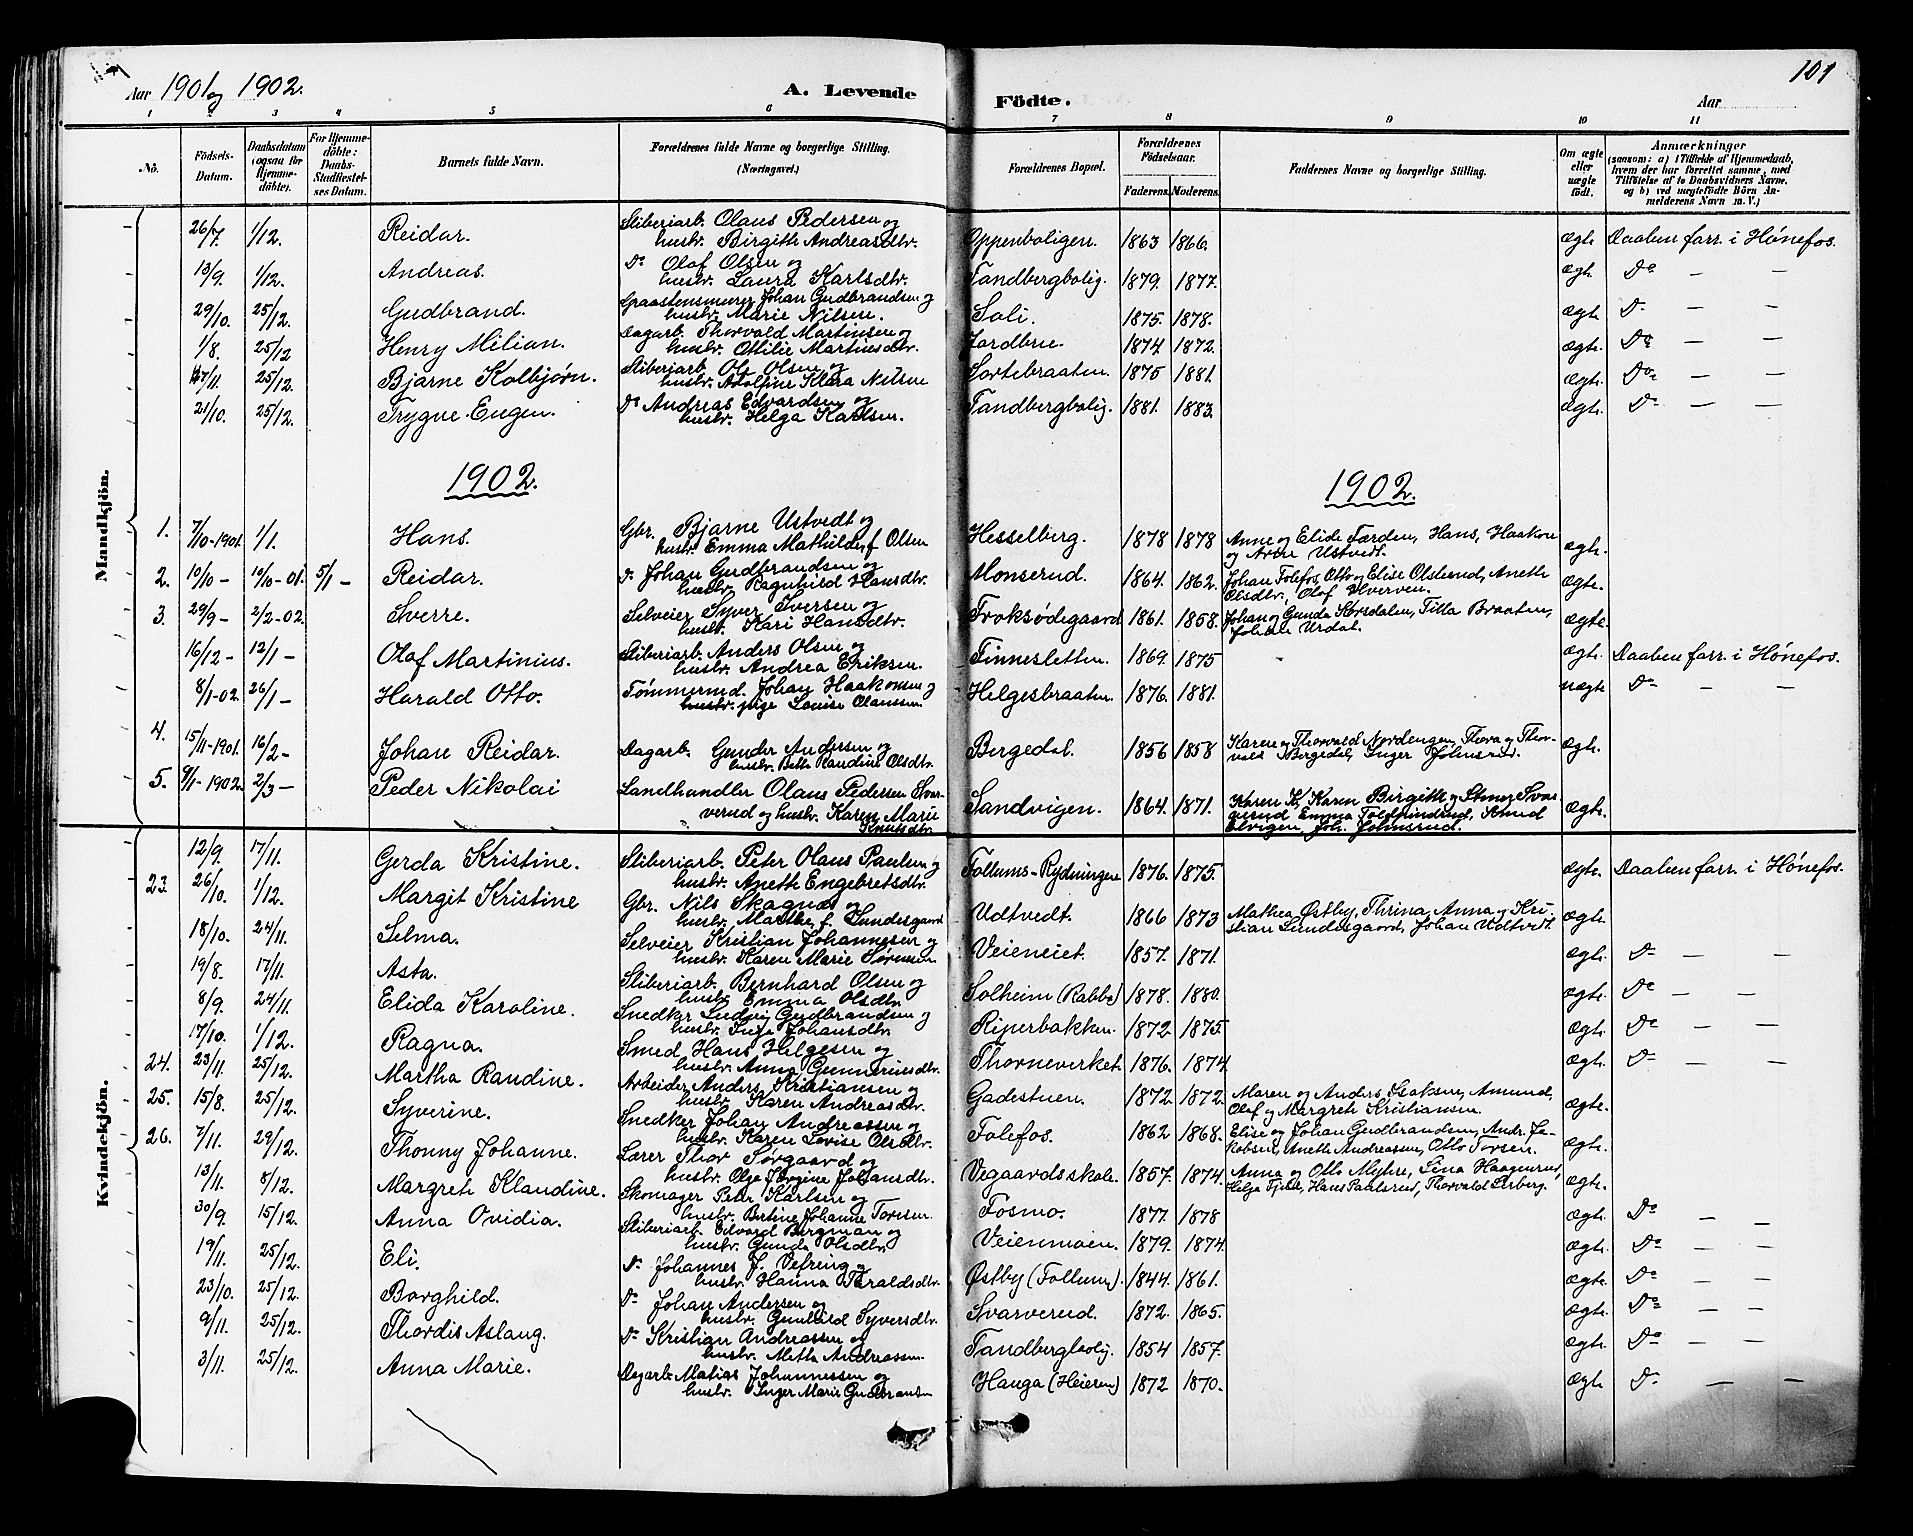 Aar 1901 og 1902.
A. Levende Födte.
Aar
101
1 2 3 4 5 6 7 8 9 10 11
No.
Födsels-Datum.
Daabsdatum (ogsaa for Hjemme-döbte).
For Hjemme-döbte: Daabs-Stadfæstelses Datum.
Barnets fulde Navn.
Forældrenes fulde Navne og borgerlige Stilling. (Næringsvei.)
Forældrenes Bopæl.
Forældrenes Födselsaar.
Faderens. Moderens.
Faddernes Navne og borgerlige Stilling.
Om ægte eller uægte födt.
Anmærkninger
(saasom: a) i Tilfælde af Hjemmedaab, hvem der har forrettet samme, med Tilföielse af to Daabsvidners Navne, og b) ved uægtefödte Börn Anmelderens Navn m. V.)
Mandkjön.
26/7. 1/12. Reidar. Sliberiarb. Olaus Pedersen og hustr. Birgith Andreasdtr. Oppenboligen. 1863 1866. ægte Daaben farr. i Hönefos.
13/9. 1/12. Andreas. Do Olaf Olsen og hustr. Laura Karlsdtr. Tandbergbolig. 1879. 1877. ægt. Do — —
29/10. 25/12. Gudbrand. Graastensmurer Johan Gudbrandsen og hustr. Marie Nilsen. Soli. 1875. 1878. ægt. Do — —
1/8. 25/12 Henry Milian. Dagarb. Thorvald Martinsen og hustr. Otilie Martinsdtr. Jordbrue. 1874 1872. ægte. Do — —
17/11. 25/12. Bjarne Kolbjørn. Sliberiarb. Ole Olsen og hustr. Adolfine Klara Nilsen Sortebraaten. 1875 1881. ægte. Do — —
21/10. 25/12. Trygve Eugen. Do Andreas Edvardsen og hustr. Helga Karlsen. Tandbergbolig. 1881. 1883. ægte. Do — —
1902. 1902.
1. 7/10-1901. 1/1. Hans. Gbr. Bjarne Ustvedt og hustr. Emma Mathilde f. Olsen Hesselberg. 1878 1878 Anne og Elide Færden, Hans, Haakon og Arne Ustvedt. ægte.
2. 10/10 - 10/10-01. 5/1 - Reidar. Do Johan Gudbrandsen og hustr. Ragnhild Hansdtr. Monserud. 1864. 1862. Johan Tolefos, Otto og Elise Olslerud, Aneth Olsdtr., Olaf Ulverven. ægte.
3. 29/9 - 2/2-02. Sverre. Selveier Syver Iversen og hustr. Kari Hansdtr. Froksødegaard 1861. 1858. Johan og Gunda Korsdalen, Tilla Braaten, Urdal. ægte.
16/12 - 12/1 - Olaf Martinius. Sliberiarb. Anders Olsen og hustr. Andrea Eriksen. Finnesletten. 1869. 1875 ægt. Daaben farr. i Hönefos.
8/1-02. 26/1 - Harald Otto. Tømmermd. Johan Haakonsen og pige Louise Olaussen. Helgesbraaten. 1876. 1881. uægte Do — —
4. 15/11-1901. 16/2 - Johan Reidar. Dagarb. Gunder Andersen og hustr. Randine Olsdtr. Bergedal. 1856 1858 Karen og Thorvald Nordengen, Thora og Thorvald Bergedal, Inger Johnsrud. ægte.
5. 9/11-1902. 2/3 - Peder Nikolai Landhandler Olaus Pedersen Svarverud og hustr. Karen Marie Knutsdtr. Sandvigen. 1864. 1871. Karen K, Karen Birgitte og Svarverud Emma Knud Elvigen, Joh. Johnsrud. ægte.
Kvindekjön.
12/9. 17/11. Gerda Kristine. Sliberiarb. Peter Olaus Paulsen og hustr. Aneth Engebretsdtr. Follums-Rydningen 1876. 1875. ægte. Daaben farr. i Hönefos.
23. 26/10. 1/12. Margit Kristine Gbr. Nils Skagnæs og hustr. Marthe f. Lundesgaard Udtvedt. 1866 1873 Mathea Østby, Thrina, Anna og Kristian Lundesgaard, Johan Udtvedt. ægte.
18/10. 24/11. Selma. Selveier Kristian Johannesen og hustr. Karen Marie Sørensen Veieneiet. 1857. 1871. ægte. Do — —
19/8. 17/11. Asta. Sliberiarb. Bernhard Olsen og hustr. Emma Olsdtr. Solheim (Rabba) 1878. 1880. ægte. Do — —
8/9. 24/11. Elida Karoline. Snedker Ludvig Gudbrandsen og hustr. Inga Johansdtr. Riperbakken. 1872. 1875 ægte. Do — —
17/10. 1/12. Ragna. Smed Hans Helgesen og hustr. Anna Gunneriusdtr. Thorneverket. 1876. 1874. ægte. Do — —
24. 23/11. 25/12. Martha Randine. Arbeider Anders Kristiansen og hustr. Karen Andreasdtr. Gadestuen. 1872 1872. Maren og Anders Isaksen, Amund, Olaf og Margrete Kristiansen. ægte.
25. 15/8. 25/12. Syverine. Snedker Johan Andreassen og hustr. Karen Lovise Olsdtr. Tolefos. 1862 1868. Elise og Johan Gudbrandsen, Andr. Jakobsen, Aneth Andreassen, Otto Torsen. ægte.
26. 7/11. 29/12. Thonny Johanne. Lærer Thor Sørgaard og hustr. Olga Jørgine Johansdtr. Vegaardsskole. 1857. 1874. Anna og Otto Myhre, Lina Haagenrud, Helga Hans Paalsrud, Thorvald Lerberg. ægte.
13/11. 8/12. Margrete Klaudine. Skomager Peder Karlsen og hustr. Bertine Johanne Toresen. Fosmo. 1877. 1878 ægte. Do — —
30/9. 15/12. Anna Ovidia. Sliberiarb. Edvard Bergman og hustr. Gunda Olsdtr. Veienmoen. 1879. 1874. ægte. Do — —
19/11. 25/12. Eli. Do Johannes J. Vefring og hustr. Hanna Taraldsdtr. Østby (Follum). 1844. 1861. ægte. Do — —
23/10. 25/12. Borghild. Do Johan Andersen og hustr. Gunhild Syversdtr. Svarverud. 1872. 1865. ægte. Do — —
9/11. 25/12. Thordis Aslaug. Do Kristian Andreassen og hustr. Mette Andreassen Tandbergbolig. 1854 1857. ægte. Do — —
3/11. 25/12. Anna Marie. Dagarb. Matias Johannessen og hustr. Inger Marie Gudbrandsen Hauga (Heieren) 1872 1870. ægt. Do — —